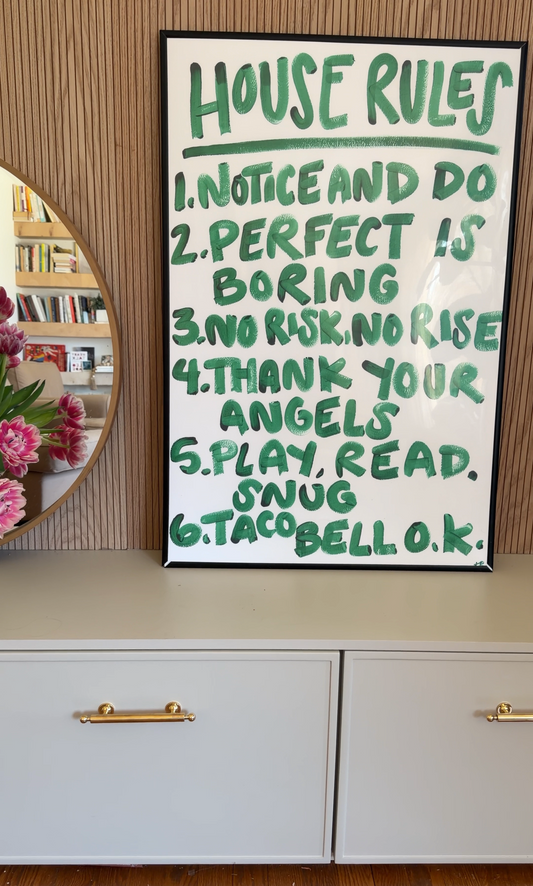 HOUSE RULES
1. NOTICE AND DO
2. PERFECT IS
BORING
3. NO RISK, NO RISE
4. THANK YOUR
ANGELS
5. PLAY, READ.
SNUG
6. TACO BELL O.K.